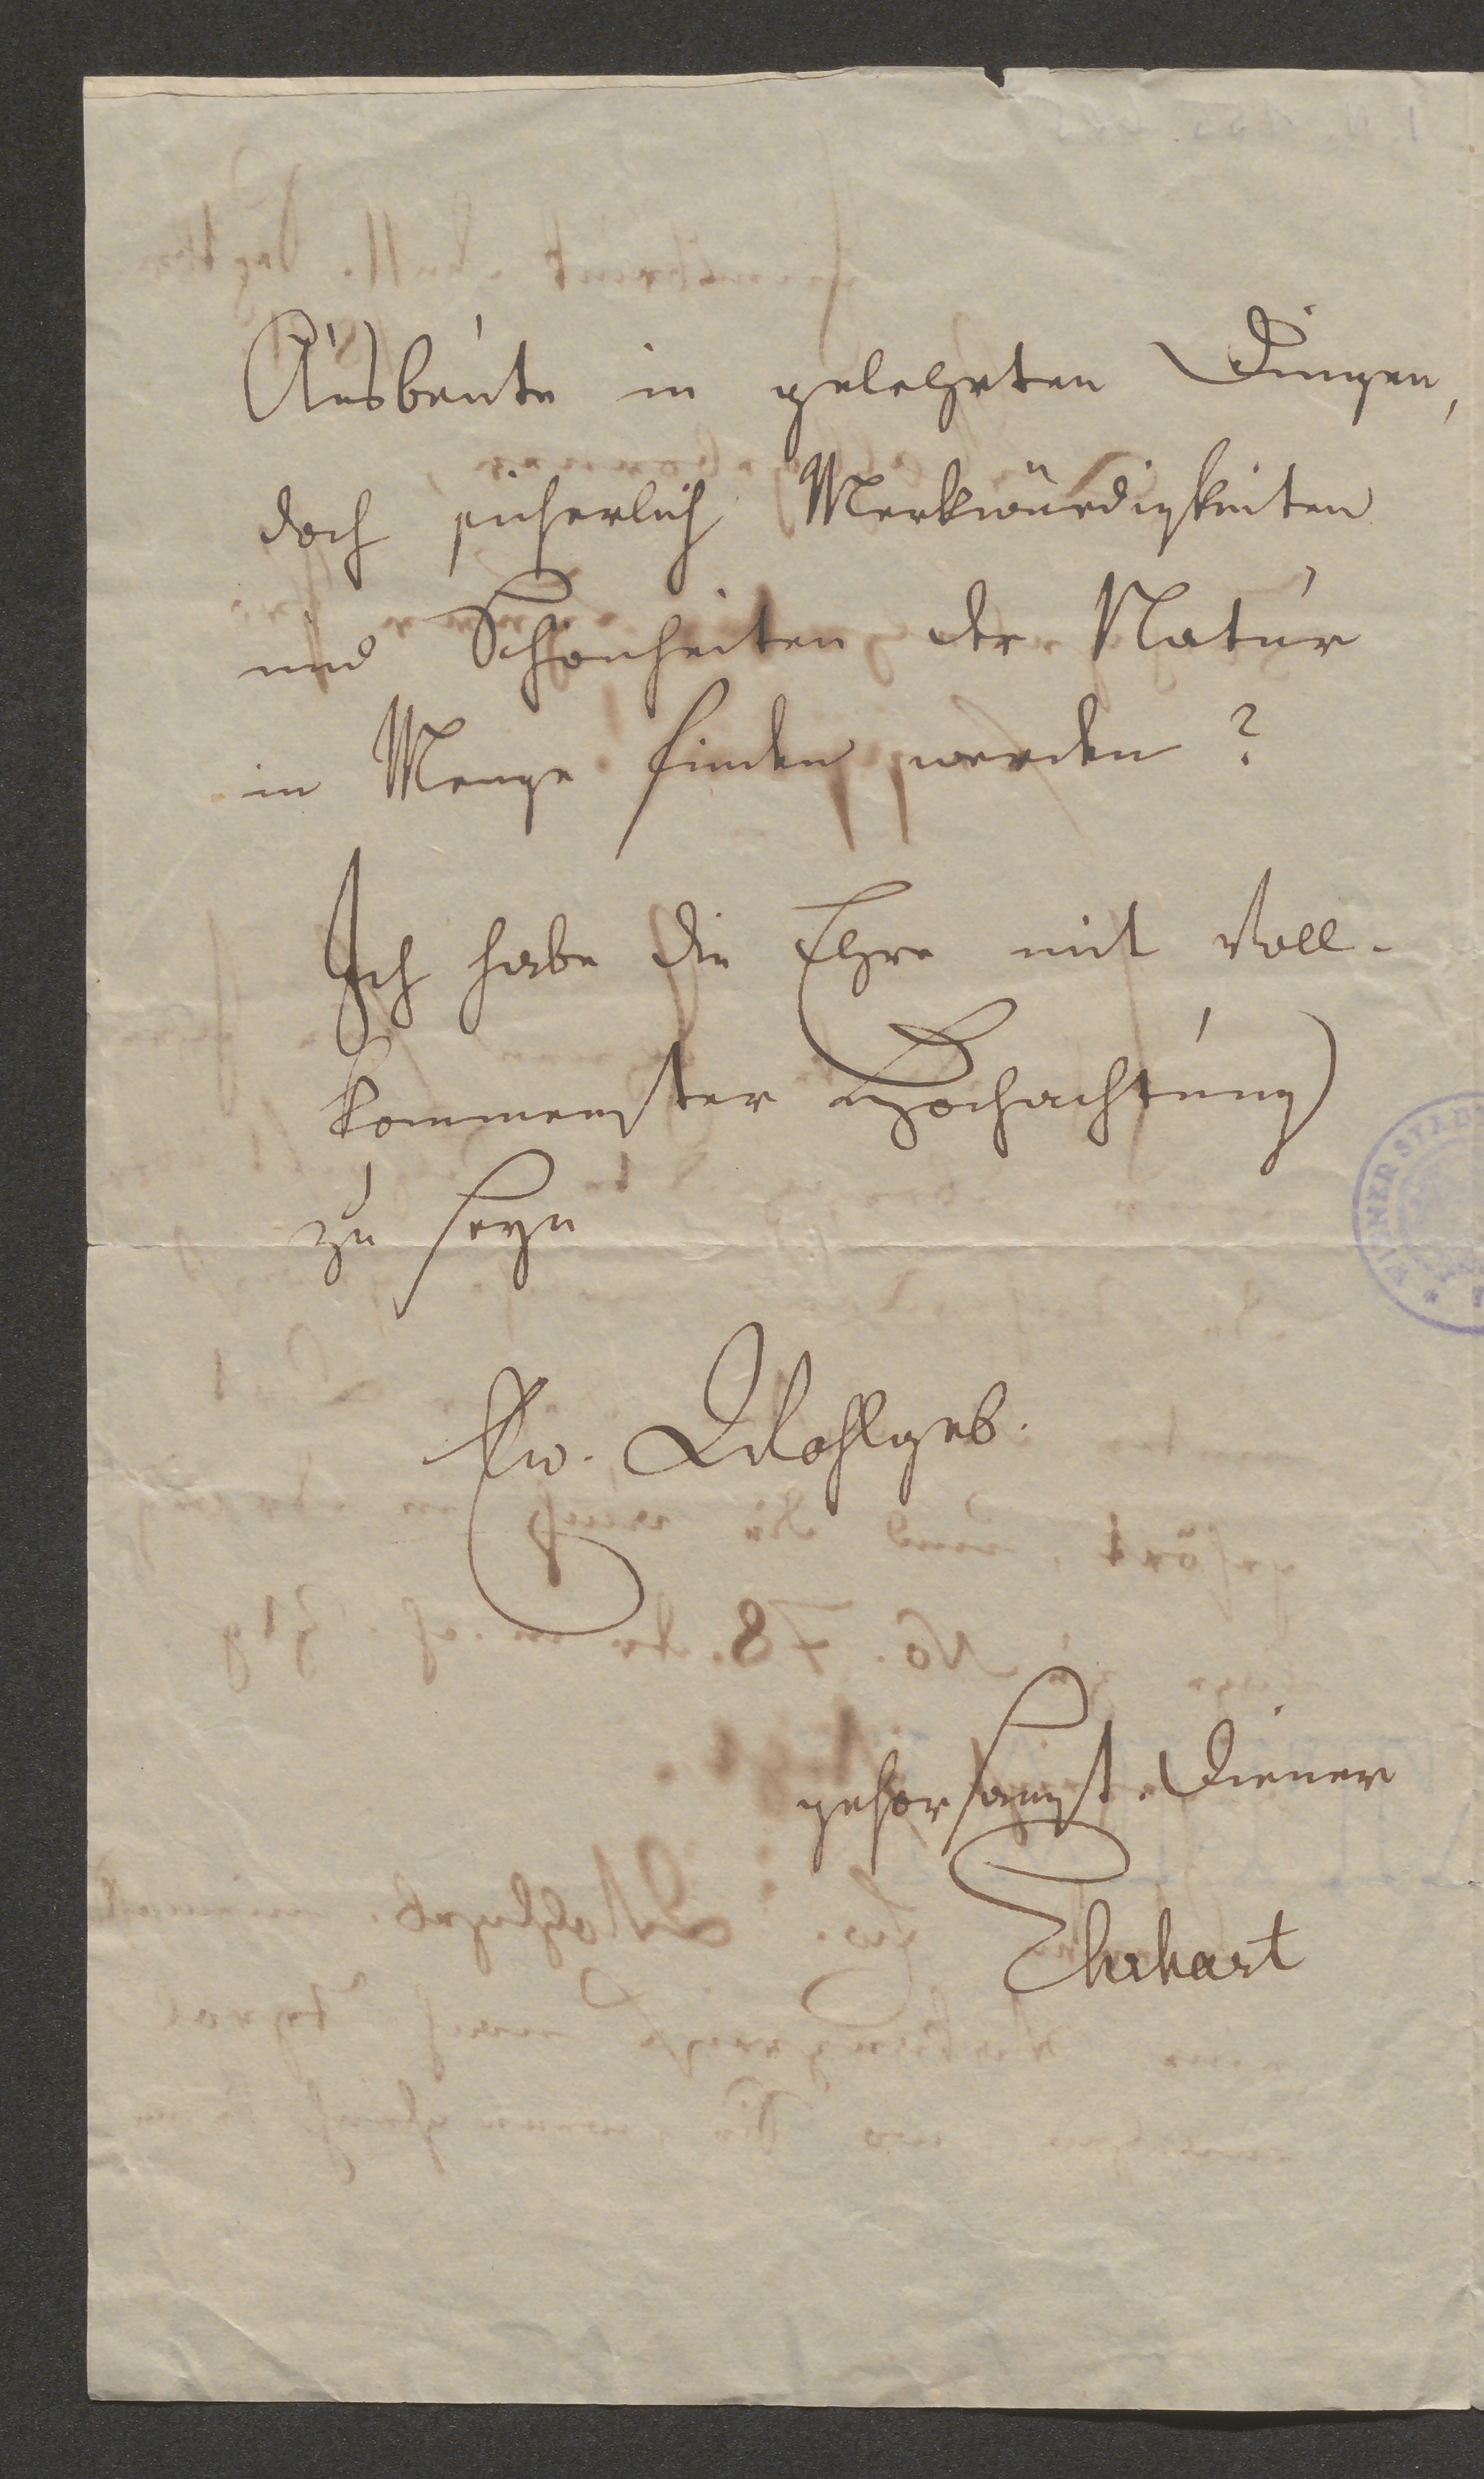 Ausbeute in gelehrten Dingen,
doch sicherlich Merkwürdigkeiten
und Schönheiten der Natur
in Menge finden werden?
Ich habe die Ehre mit voll-
kommenster Hochachtung
zu seyn
Ew. Wohlgeb.
gehorsamst. Diener
Ehrhart
WIENER STAD